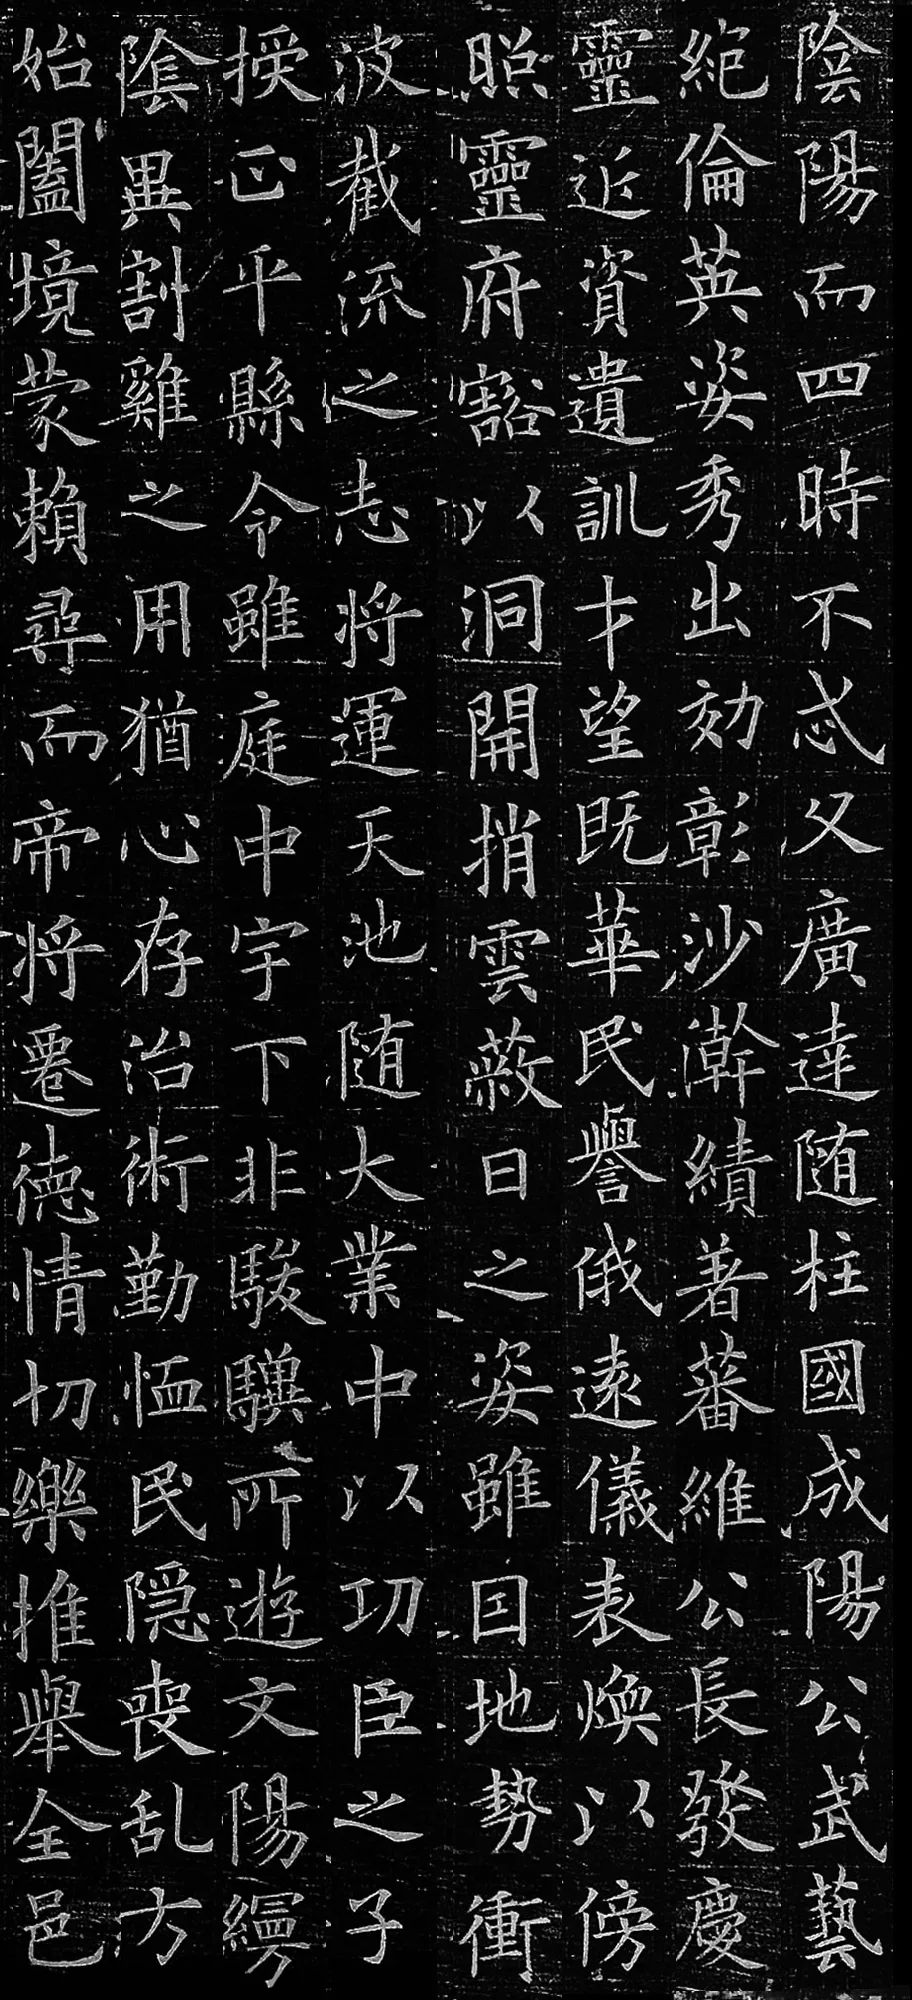 陰陽而四時不忒父廣達随柱國成陽公武藝
絕倫英姿秀出効彰沙漸績著蕃維公長發慶
靈近資遺訓才望既華民譽俄遠儀表煥以傍
照靈府豁以洞開捎雲蔽日之姿雖因地勢衝
波截流之志將運天池随大業中以功臣之子
授正平縣令雖庭中宇下非駿驥所遊文陽縵
陰異割雞之用猶心存治術勤恤民隠喪乱方
始闔境蒙賴尋而帝将遷德情切樂推舉全邑